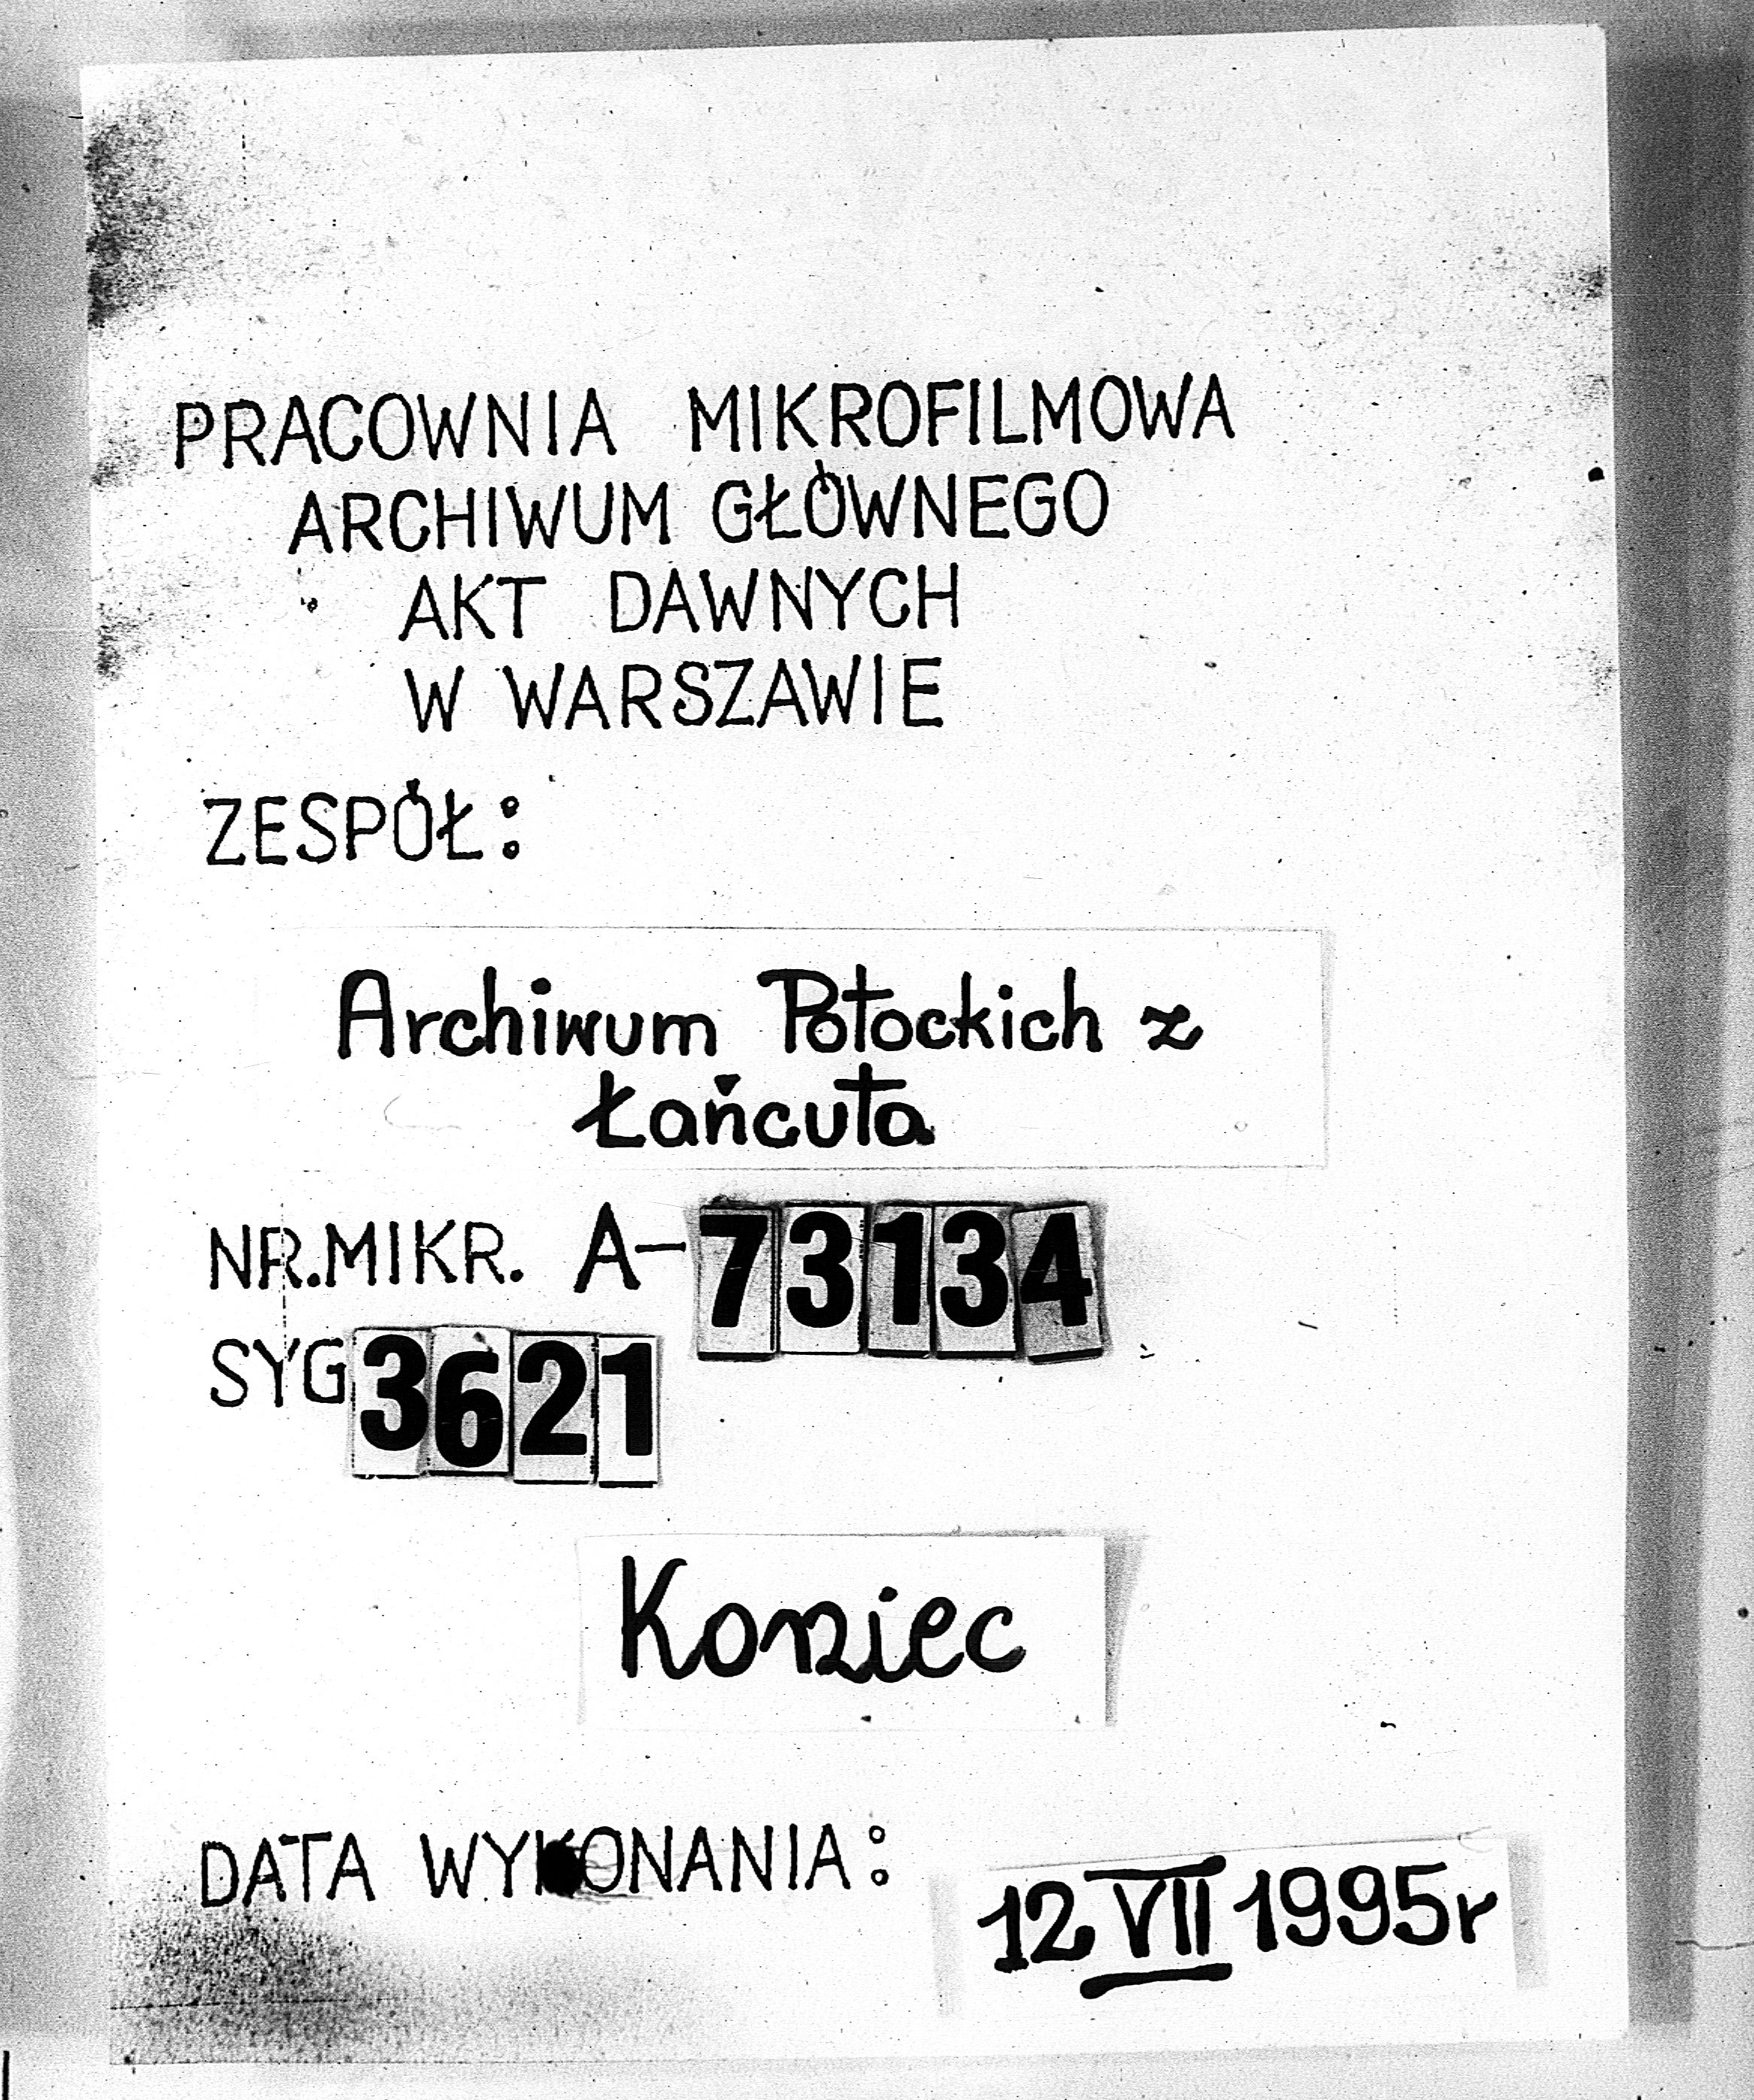 PRACOWNIA MIKROFILMOWA
ARCHIWUM GŁÓWNEGO
AKT DAWNYCH
W WARSZAWIE
ZESPÓŁ:
Archiwum Potockich z
Łańcuta
NR.MIKR. A-73134
SYG 3621
Koniec
DATA WYKONANIA: 12 VII 1995r